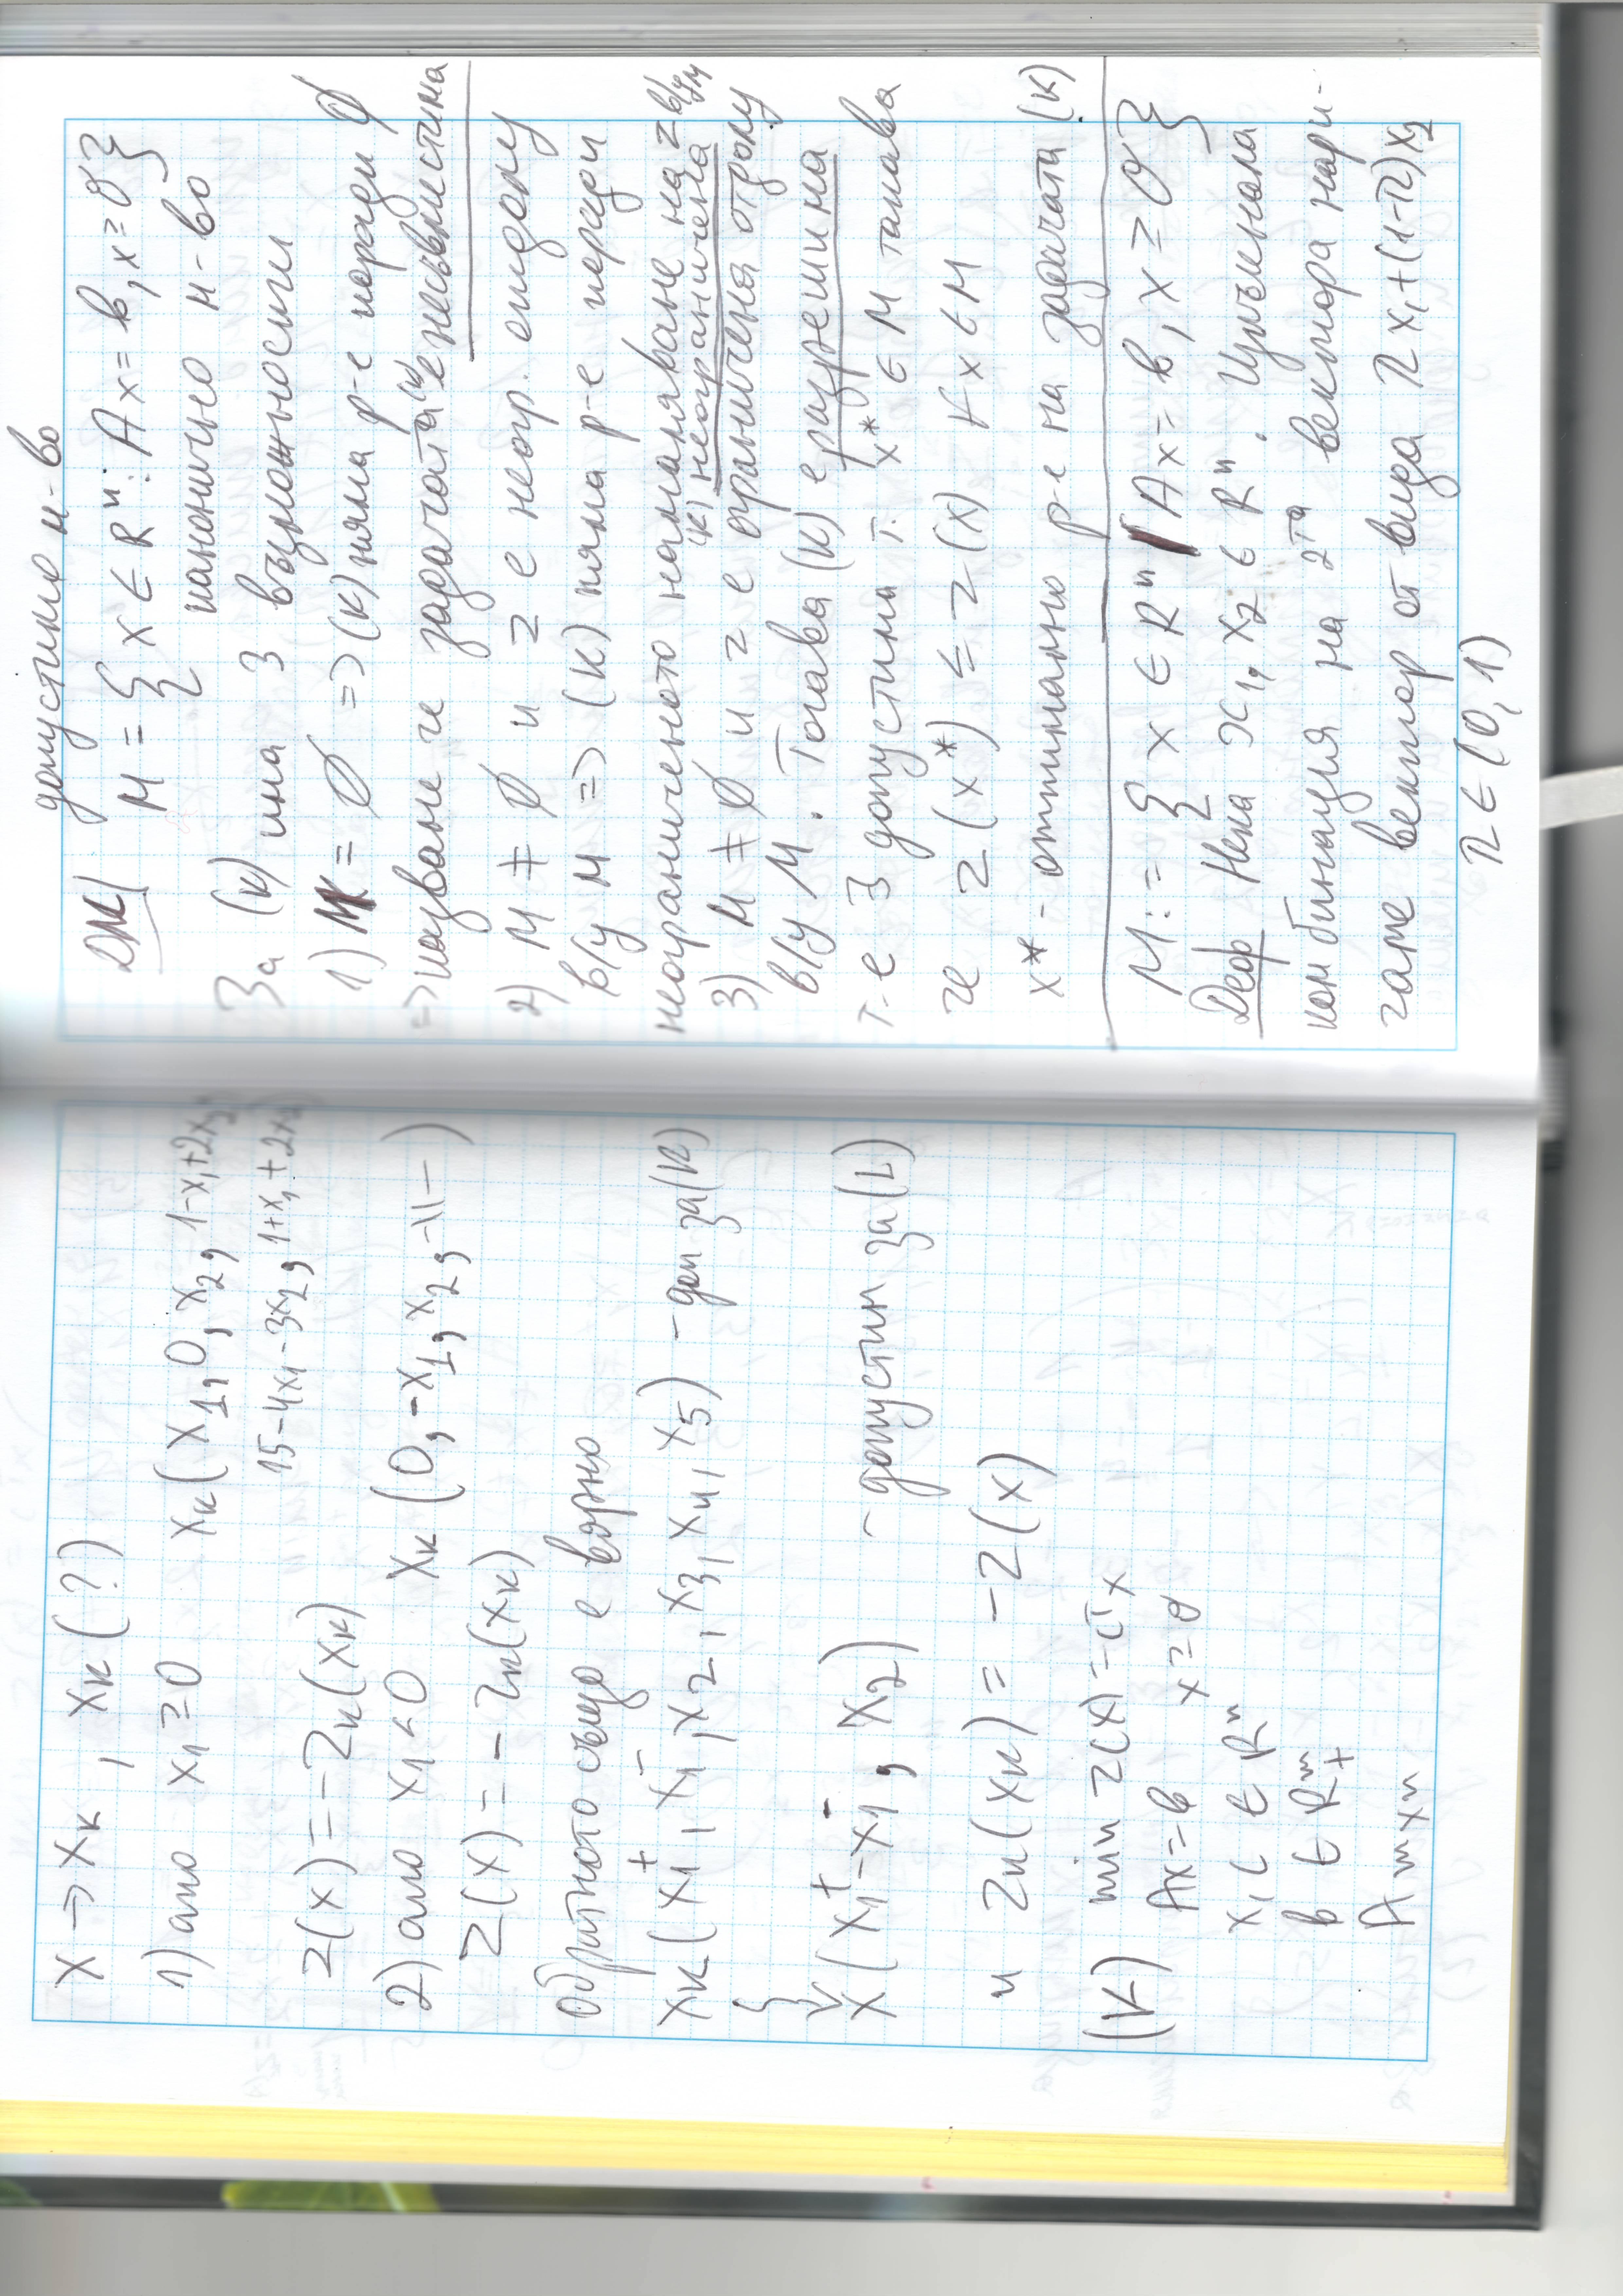 x → xк, xк(?)
1) ако x1 ≥ 0 xк(x1, 0, x2, 1-x1+2x2,
15-4x1-3x2, 1+x1+2x2)
z(x) = -zк(xк)
2) ако x1 < 0 xк(0, -x1, x2, -11-)
z(x) = -zк(xк)
Обратното също е вярно
xк(x1⁺, x1⁻, x2, x3, x4, x5) - доп за (К)
x(x1⁺-x1⁻, x2) - допустим за (L)
и zк(xк) = -z(x)
(К) min z(x) = cᵀx
Ax = b x ≥ 0
x, c ∈ Rⁿ
b ∈ Rᵐ₊
A m×n
допустимо м-во
ДМ M = {x ∈ Rⁿ: Ax = b, x ≥ 0}
канонично м-во
За (К) има 3 възможности
1) M = ∅ => (К) няма р-е поради ∅
=> казваме че задачата (К) е несъвместима
2) M ≠ ∅ и z е неогр. отдолу
в/у M => (К) няма р-е поради
неограниченото намаляване на z в/у M
(К) неограничена
3) M ≠ ∅ и z е ограничена отдолу
в/у M. Тогава (К) е разрешима
т.е ∃ допустима т. x* ∈ M такава
че z(x*) ≤ z(x) ∀ x ∈ M
x* - оптимално р-е на задачата (К)
M := {x ∈ Rⁿ | Ax = b, x ≥ 0}
Деф Нека x1, x2 ∈ Rⁿ. Изпъкнала
комбинация на 2та вектора нари-
чаме вектор от вида λx1+(1-λ)x2
λ ∈ [0, 1]